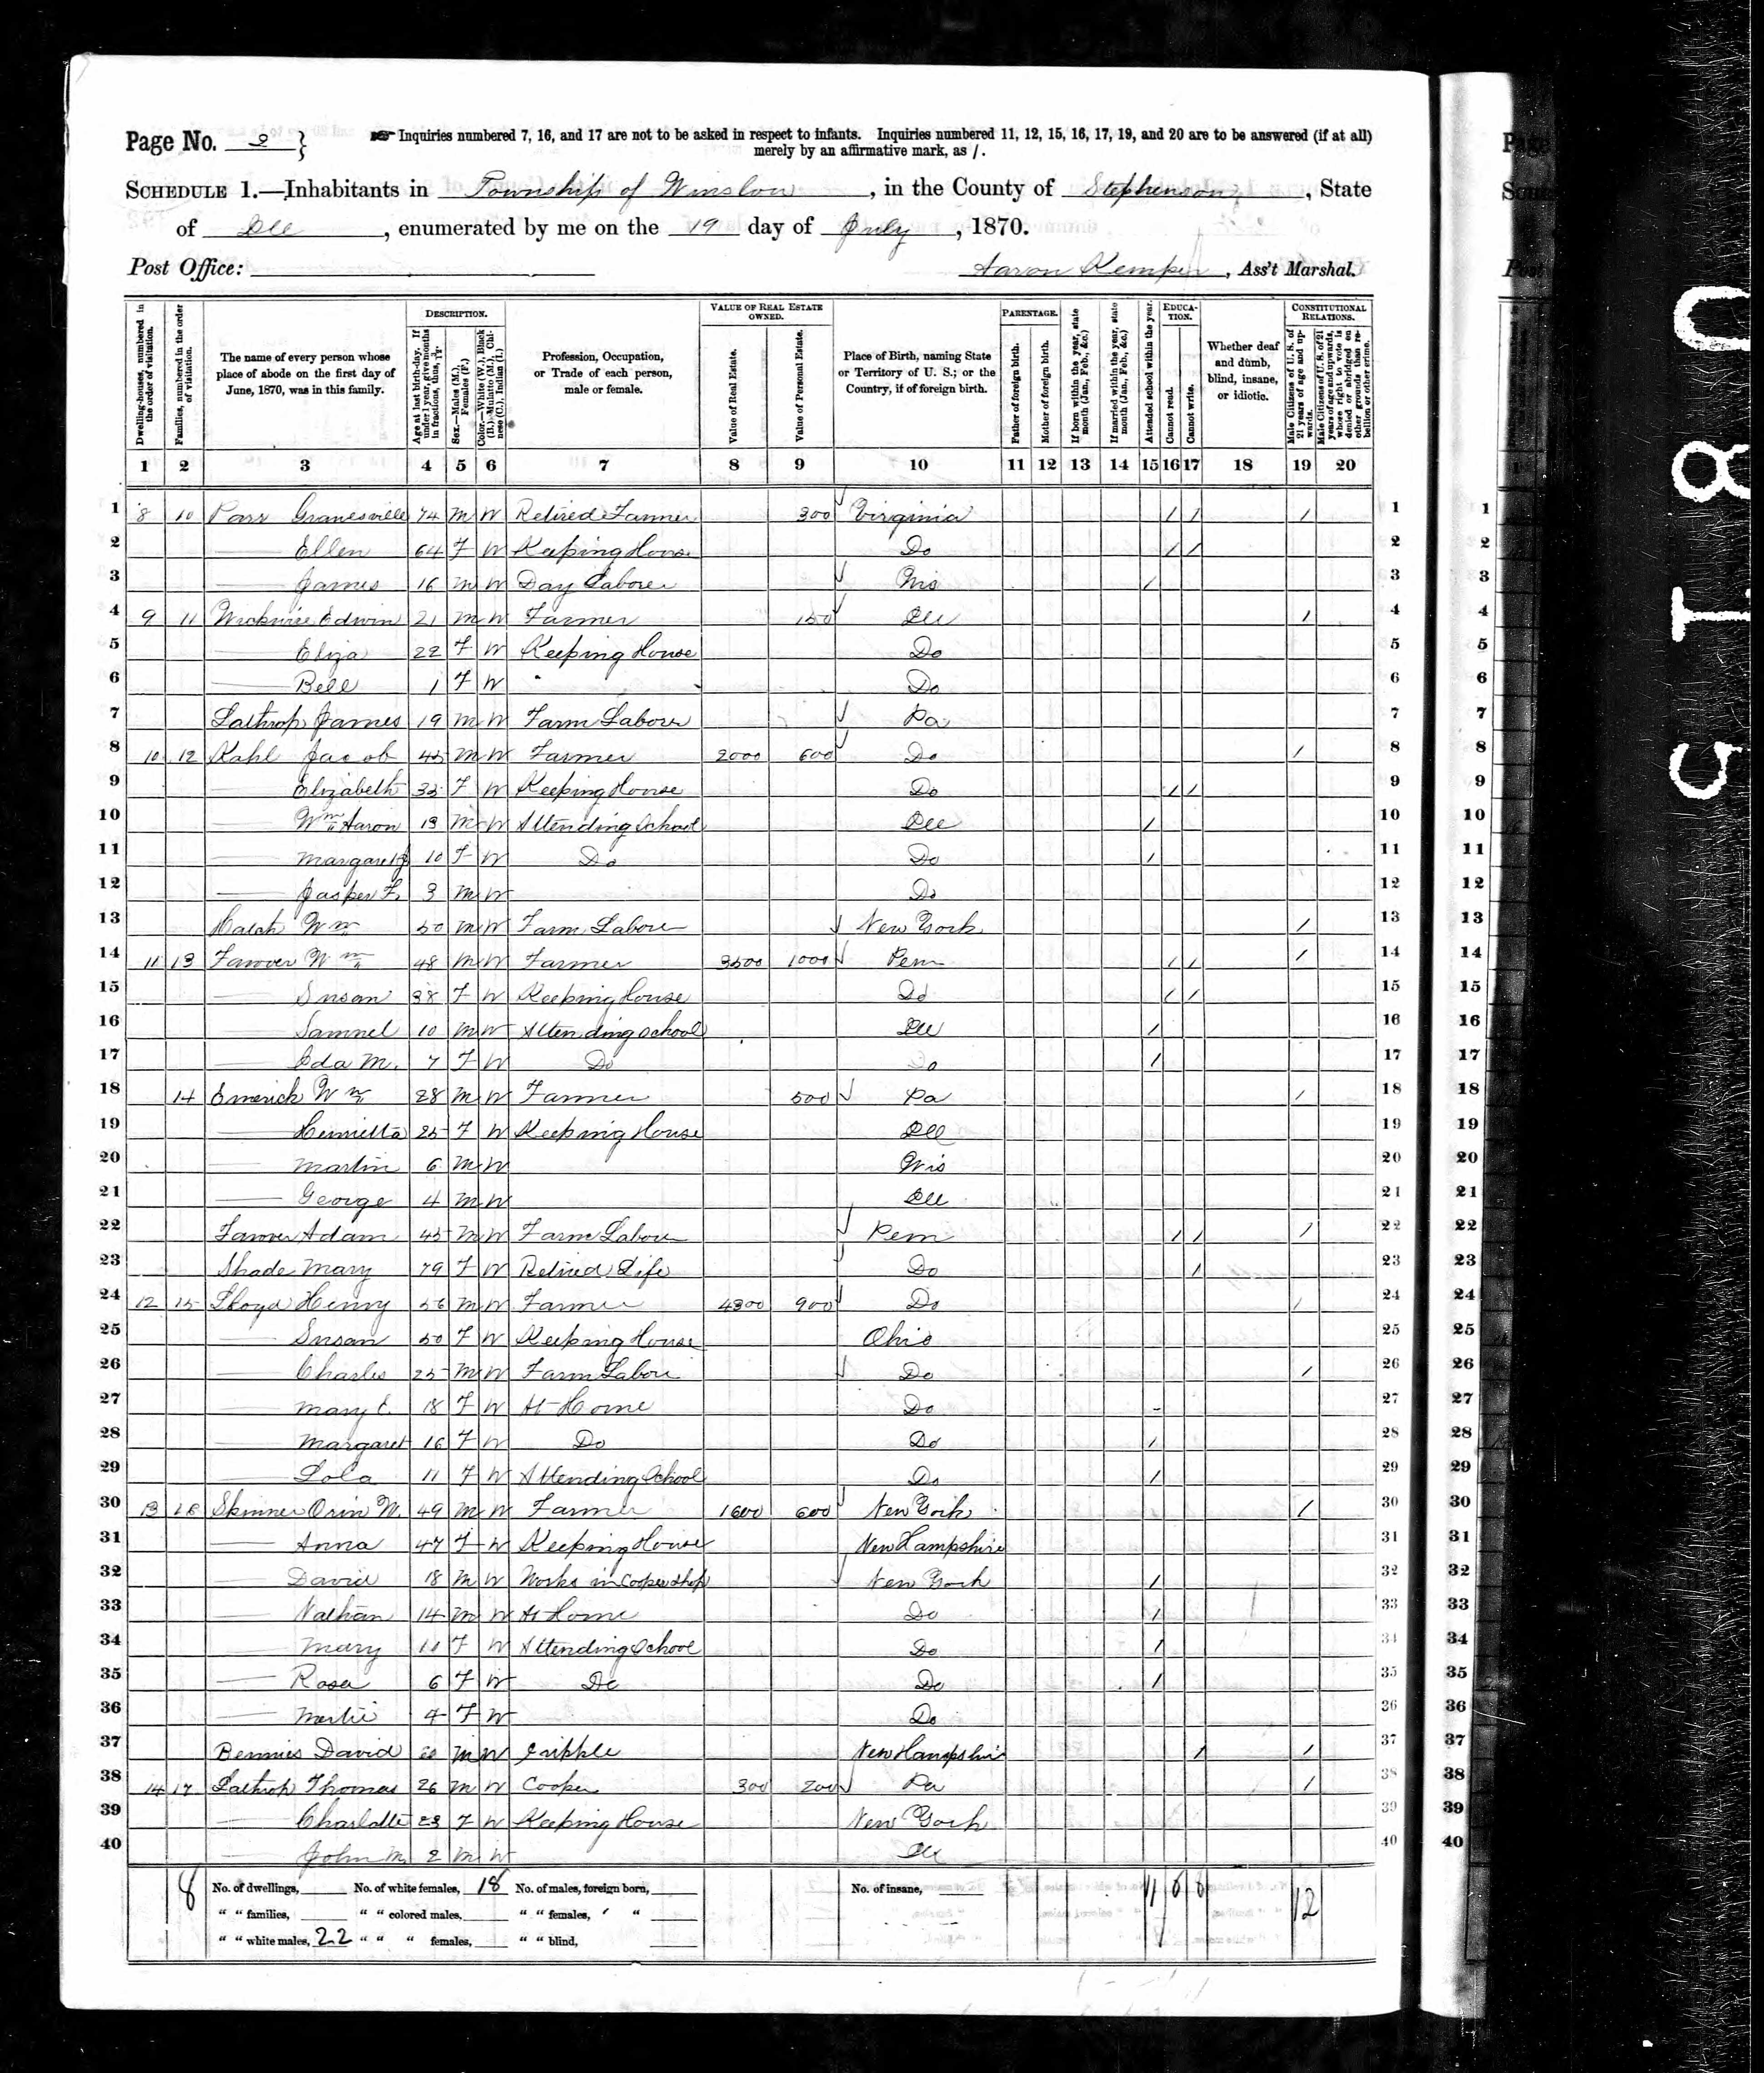 Page No. 2 }
Inquiries numbered 7, 16, and 17 are not to be asked in respect to infants. Inquiries numbered 11, 12, 15, 16, 17, 19, and 20 are to be answered (if at all)
merely by an affirmative mark, as /.
SCHEDULE 1.—Inhabitants in Township of Winslow, in the County of Stephenson, State
of Ill, enumerated by me on the 19 day of July, 1870.
Post Office: Aaron Kemper, Ass't Marshal.
Dwelling-houses, numbered in the order of visitation.
Families, numbered in the order of visitation.
The name of every person whose place of abode on the first day of June, 1870, was in this family.
DESCRIPTION.
Age at last birth-day. If under 1 year, give months in fractions, thus, 3/12.
Sex.—Males (M.), Females (F.)
Color.—White (W.), Black (B.), Mulatto (M.), Chinese (C.), Indian (I.)
Profession, Occupation, or Trade of each person, male or female.
VALUE OF REAL ESTATE OWNED.
Value of Real Estate.
Value of Personal Estate.
Place of Birth, naming State or Territory of U. S.; or the Country, if of foreign birth.
PARENTAGE.
Father of foreign birth.
Mother of foreign birth.
If born within the year, state month (Jan., Feb., &c.)
If married within the year, state month (Jan., Feb., &c.)
Attended school within the year.
EDUCATION.
Cannot read.
Cannot write.
Whether deaf and dumb, blind, insane, or idiotic.
CONSTITUTIONAL RELATIONS.
Male Citizens of U. S. of 21 years of age and upwards.
Male Citizens of U. S. of 21 years of age and upwards, whose right to vote is denied or abridged on other grounds than rebellion or other crime.
1 2 3 4 5 6 7 8 9 10 11 12 13 14 15 16 17 18 19 20
1 8 10 Parr Granesville 74 M W Retired Farmer 300 Virginia / / / 1
2 — Ellen 64 F W Keeping House Do / / 2
3 — James 16 M W Day Laborer Wis / 3
4 9 11 Edwin 21 M W Farmer 150 Ill / 4
5 — Eliza 22 F W Keeping House Do 5
6 — Bell 1 F W Do 6
7 Lathrop James 19 M W Farm Labour Pa 7
8 10 12 Kahl Jacob 45 M W Farmer 2000 600 Do / 8
9 — Elizabeth 35 F W Keeping House Do / / 9
10 — Wm Aaron 13 M W Attending School Ill / 10
11 — Margaret J 10 F W Do Do / 11
12 — Jasper F. 3 M W Do 12
13 Hatch Wm 50 M W Farm Labour New York / 13
14 11 13 Fanver Wm 48 M W Farmer 3500 1000 Penn / / / 14
15 — Susan 38 F W Keeping House Do / / 15
16 — Samuel 10 M W Attending School Ill / 16
17 — Ida M. 7 F W Do Do / 17
18 14 Emerick Wm 28 M W Farmer 500 Pa / 18
19 — Henrietta 25 F W Keeping House Ill 19
20 — Martin 6 M W Wis 20
21 — George 4 M W Ill 21
22 Fanver Adam 45 M W Farm Labour Penn / / / 22
23 Shade Mary 79 F W Retired Life Do / 23
24 12 15 Lloyd Henry 56 M W Farmer 4300 900 Do / 24
25 — Susan 50 F W Keeping House Ohio 25
26 — Charles 25 M W Farm Labour Do / 26
27 — Mary E. 18 F W At Home Do 27
28 — Margaret 16 F W Do Do / 28
29 — Lola 11 F W Attending School Do / 29
30 13 16 Skinner Orin W. 49 M W Farmer 1600 600 New York / 30
31 — Anna 47 F W Keeping House New Hampshire 31
32 — David 18 M W Works in Cooper Shop New York / 32
33 — Nathan 14 M W At Home Do / 33
34 — Mary 10 F W Attending School Do / 34
35 — Rosa 6 F W Do Do / 35
36 — 4 F W Do 36
37 Bennies David 60 M W Cripple New Hampshire / / 37
38 14 17 Lathrop Thomas 26 M W Cooper 300 200 Pa / 38
39 — Charlotte 23 F W Keeping House New York 39
40 — John M. 2 M W Ill 40
8 No. of dwellings, No. of white females, 18 No. of males, foreign born, No. of insane, 12
" " families, " " colored males, " " females, " "
" " white males, 22 " " " females, " " blind,